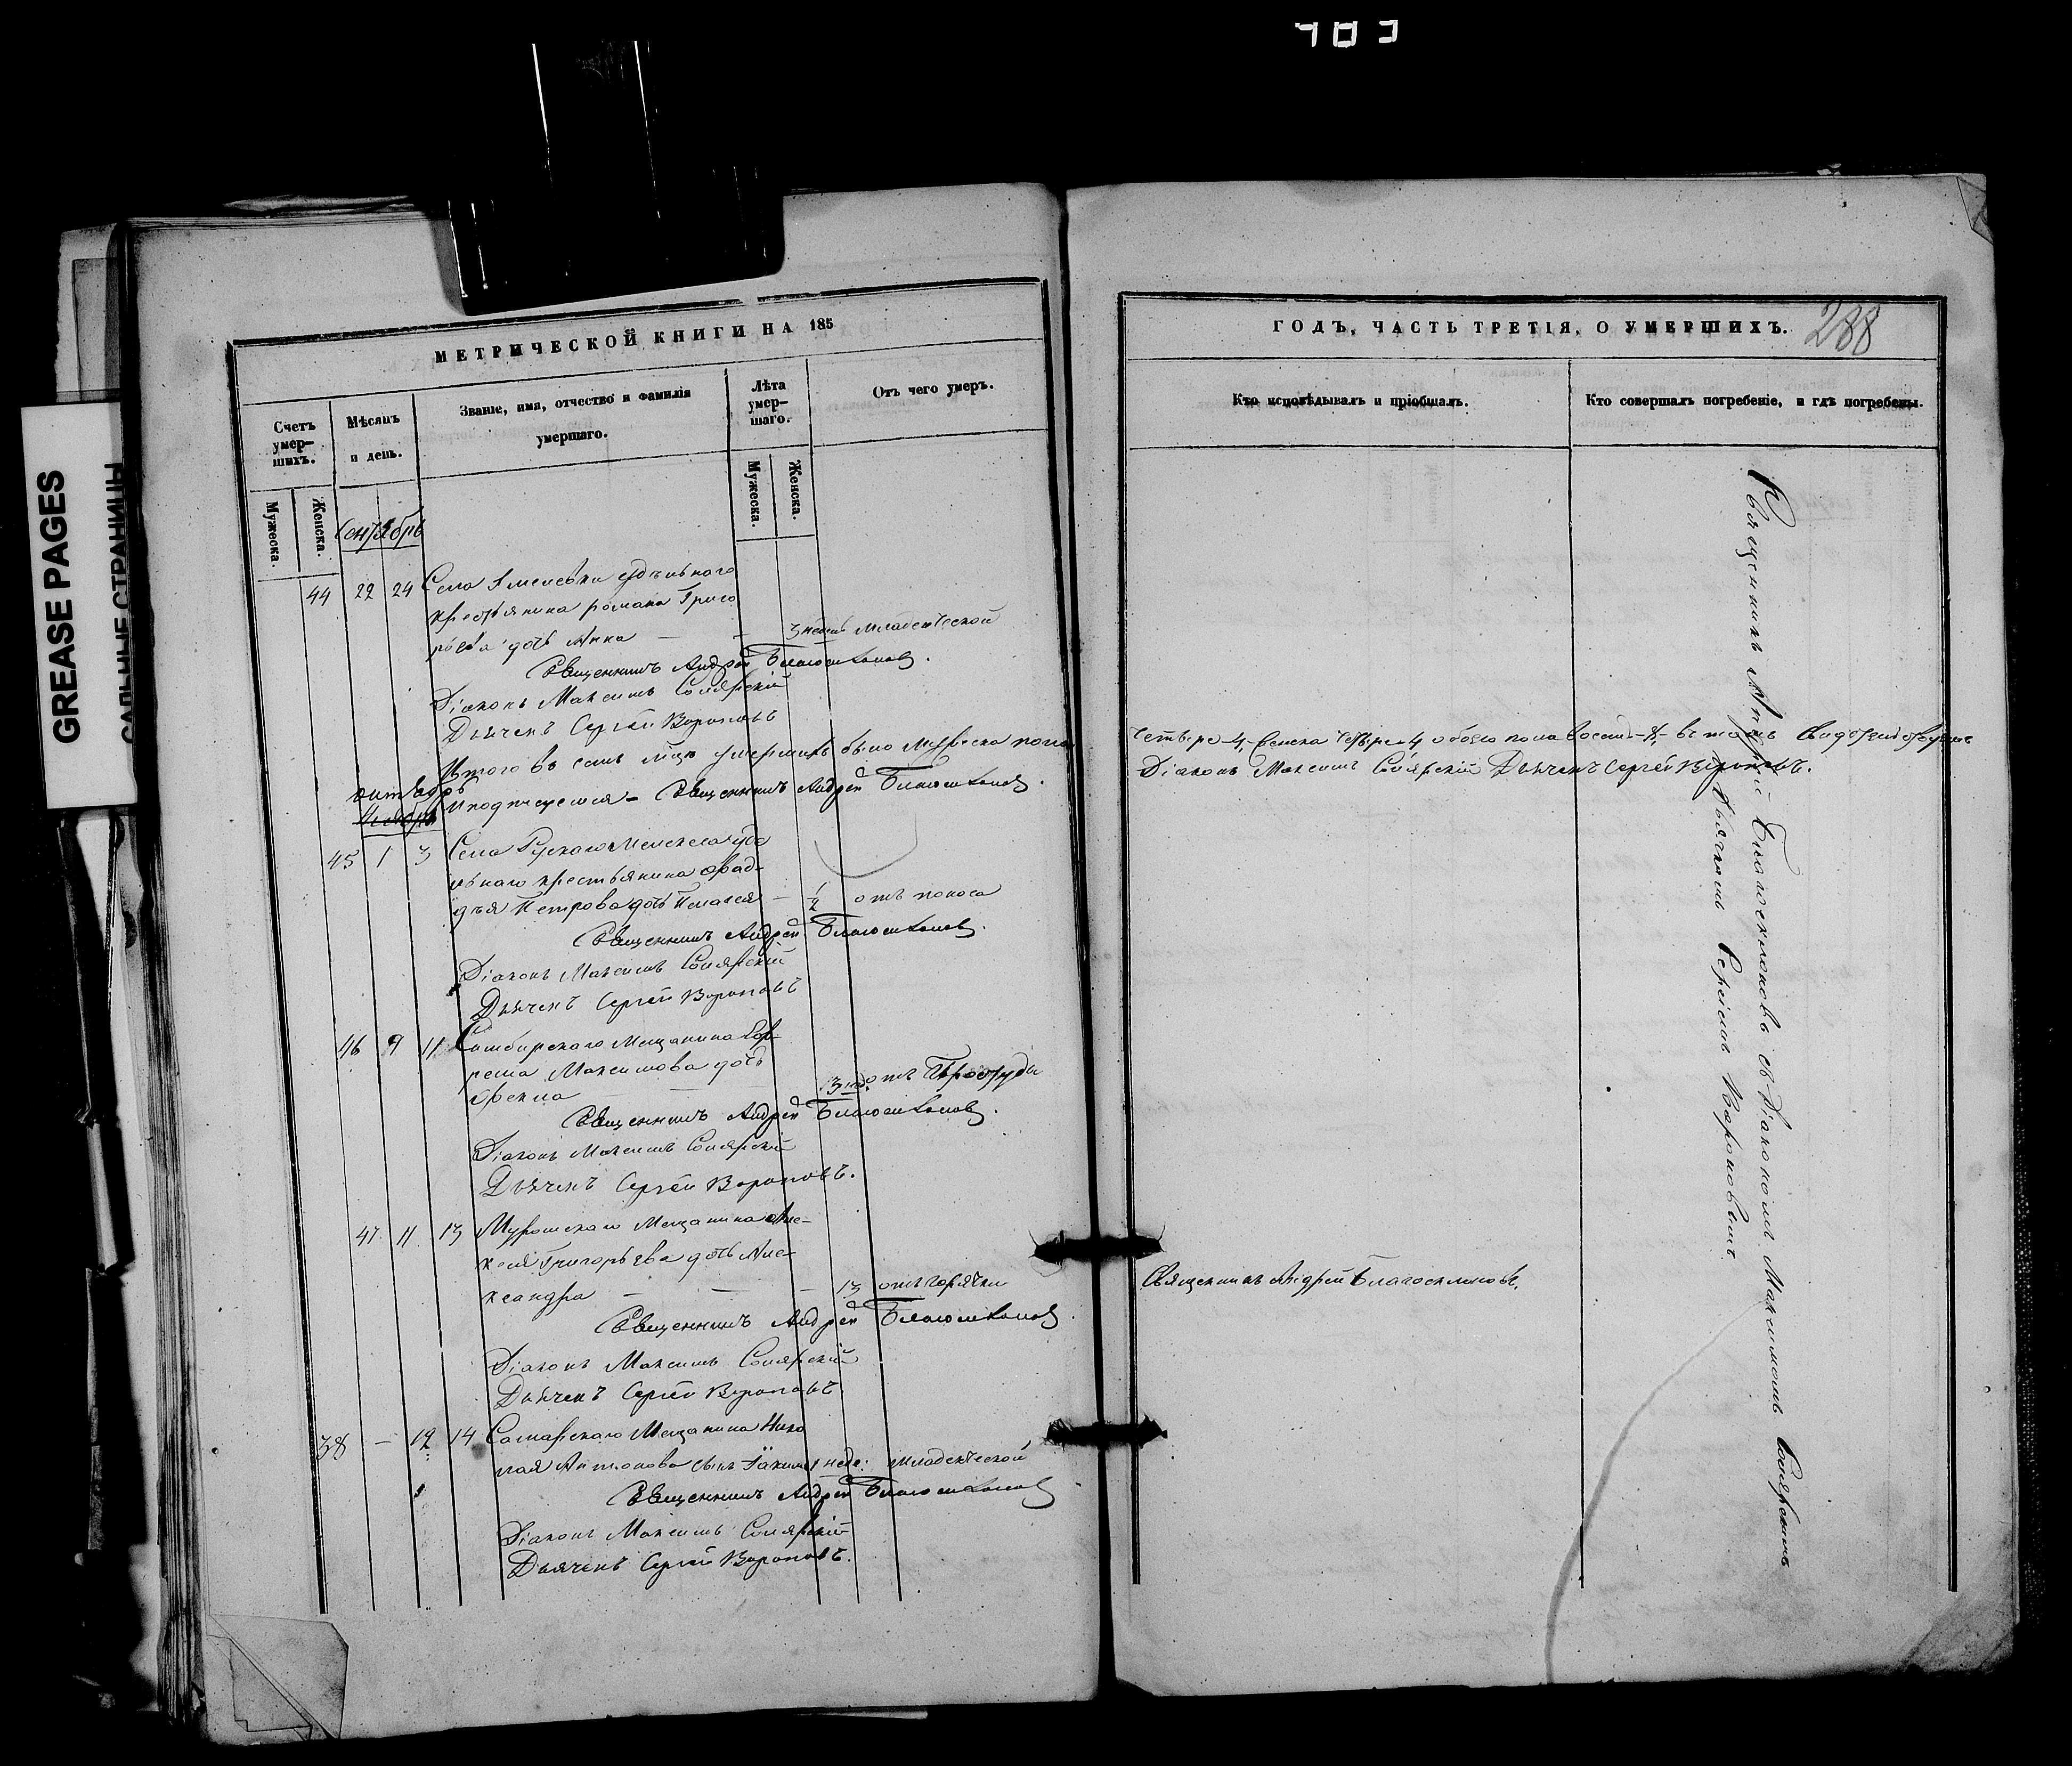 GREASE PAGES
САЛЬНЫЕ СТРАНИЦЫ
МЕТРИЧЕСКОЙ КНИГИ НА 185
Счетъ умер–шихъ.
Мѣсяцъ и день.
Званіе, имя, отчество и фамилія умершаго.
Лѣта умер–шаго.
Отъ чего умеръ.
Мужеска.
Женска.
Мужеска.
Женска.
Сентябрь
44 22 24 Села удѣльнаго
крестьянина романа Григо
рьева дочь Анна — — 3 недѣль младенческой
Священникъ Андрей Благосклоновъ.
Діаконъ Максимъ Соллрскій
Дьячекъ Сергѣй Вороновъ
Итого въ семъ м-цѣ умершихъ было мужеска пола
Октябрь
Священникъ Андрей Благосклоновъ.
45 1 3 Села Рускаго Мелекеса удѣ
льнаго крестьянина Фад–
дѣя Петрова дочь Пелагея — ½ отъ поноса
Священникъ Андрей Благосклоновъ.
Діаконъ Максимъ Соллрскій
Дьячекъ Сергѣй Вороновъ
46 9 11 Симбирскаго Мещанина
Максимова дочь
Фекла — — отъ Простуды
Священникъ Андрей Благосклоновъ.
Діаконъ Максимъ Соллрскій
Дьячекъ Сергѣй Вороновъ.
47 11 13 Муромскаго Мещанина Але–
ксѣя Григорьева дочь Але–
ксандра — — — 13 отъ горячки
Священникъ Андрей Благосклоновъ.
Діаконъ Максимъ Соллрскій
Дьячекъ Сергѣй Вороновъ
38 — 12 14 Самарскаго Мещанина Нико
лая Антонова сынъ Іакимъ неде: младенческой
Священникъ Андрей Благосклоновъ
Діаконъ Максимъ Соллрскій
Дьячекъ Сергѣй Вороновъ.
ГОДЪ, ЧАСТЬ ТРЕТІЯ, О УМЕРШИХЪ.
288
Кто исповѣдывалъ и пріобщалъ.
Кто совершалъ погребеніе, и гдѣ погребены.
четыре–4, женска четыре 4 обоего пола восемь–8,– въ томъ
Діаконъ Максимъ Соллрскій Дьячекъ Сергѣй Вороновъ.
Священникъ Андрей Благосклоновъ съ Діакономъ Максимомъ
Дьячкомъ Сергѣемъ Вороновымъ
Священникъ Андрей Благосклоновъ.